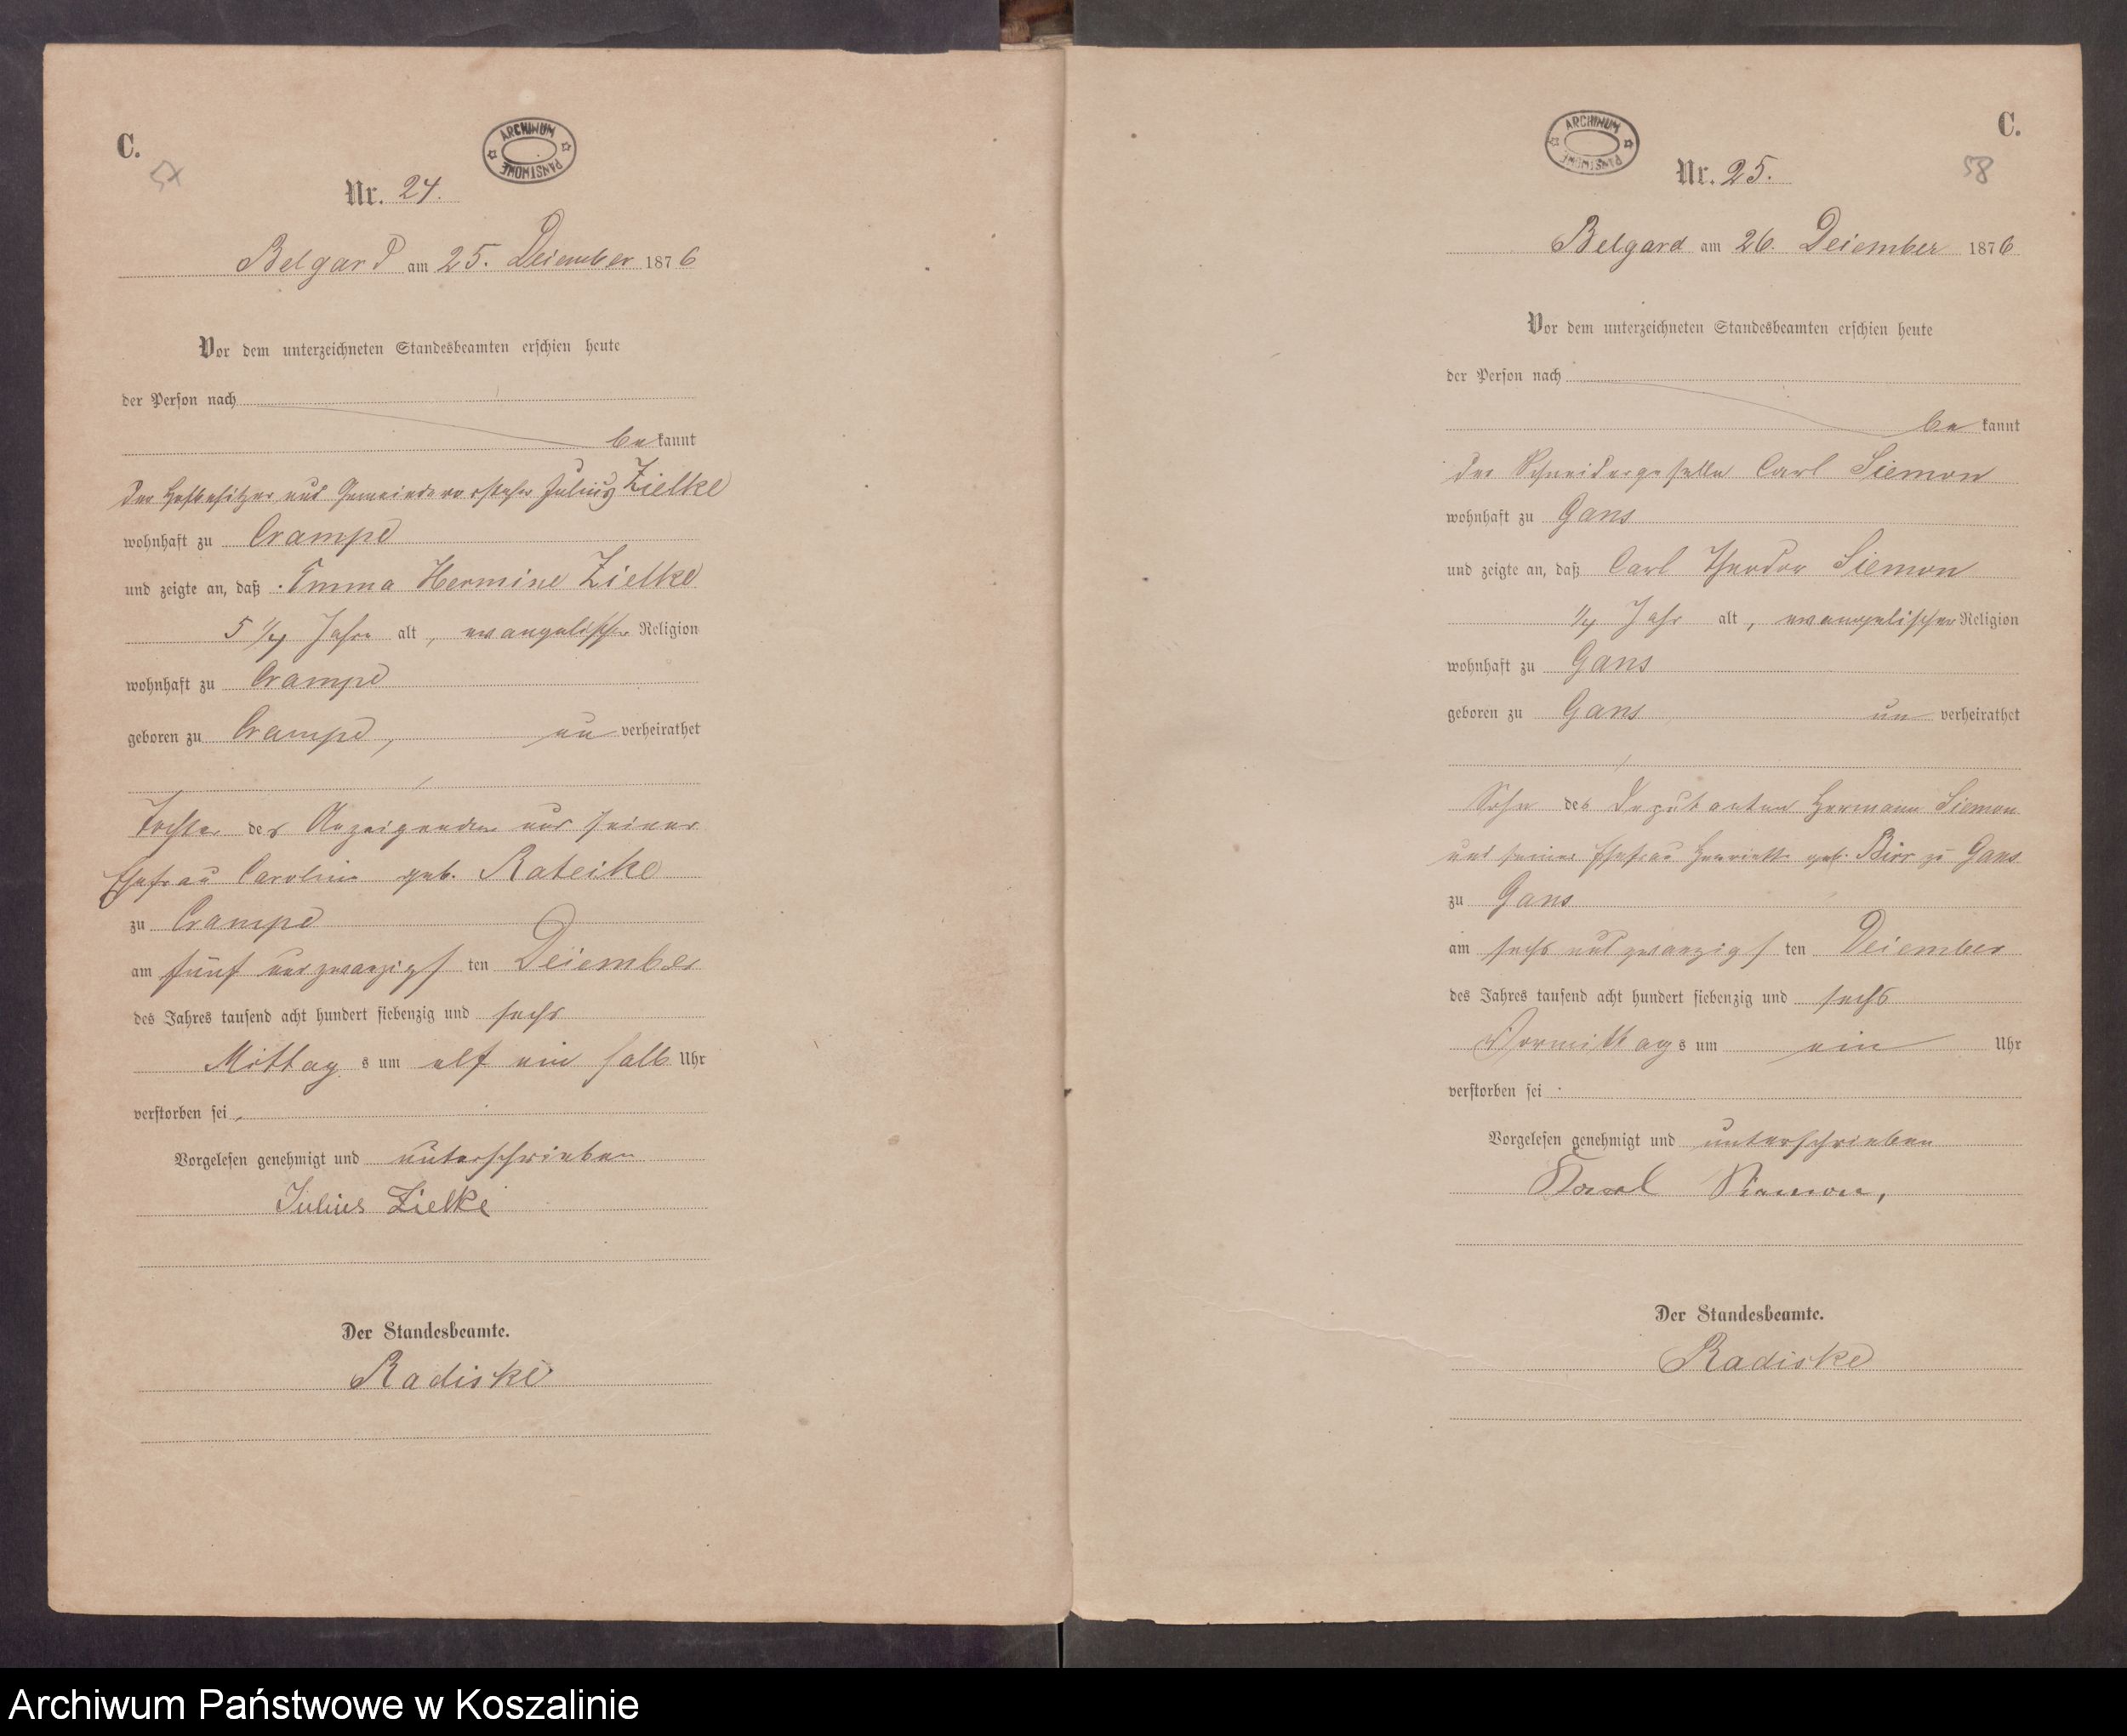 C.
57
ARCHIWUM PAŃSTWOWE
Nr. 24.
Belgard am 25. Deiember 1876
Vor dem unterzeichneten Standesbeamten erschien heute
der Person nach
bekannt
der Hofbesitzer und Gemeindevorsteher Julius Zielke
wohnhaft zu Crampe
und zeigte an, daß Emma Hermine Zielke
5 1/4 Jahre alt, evangelischer Religion
wohnhaft zu Crampe
geboren zu Crampe, unverheirathet
Tochter des Anzeigenden und seiner
Ehefrau Caroline geb. Rateike
zu Crampe
am fünf und zwanzigsten Deiember
des Jahres tausend acht hundert siebenzig und sechs
Mittags um elf ein halb Uhr
verstorben sei.
Vorgelesen genehmigt und unterschrieben
Julius Zielke
Der Standesbeamte.
Radiske
C.
58
ARCHIWUM PAŃSTWOWE
Nr. 25.
Belgard am 26. Deiember 1876
Vor dem unterzeichneten Standesbeamten erschien heute
der Person nach
bekannt
der Schneidergeselle Carl Siemon
wohnhaft zu Gans
und zeigte an, daß Carl Theodor Siemon
1/4 Jahr alt, evangelischer Religion
wohnhaft zu Gans
geboren zu Gans unverheirathet
Sohn des Deputanten Hermann Siemon
und seiner Ehefrau Henriette geb. Birr zu Gans
zu Gans
am sechs und zwanzigsten Deiember
des Jahres tausend acht hundert siebenzig und sechs
Vormittags um ein Uhr
verstorben sei.
Vorgelesen genehmigt und unterschrieben
Karl Siemon,
Der Standesbeamte.
Radiske
Archiwum Państwowe w Koszalinie